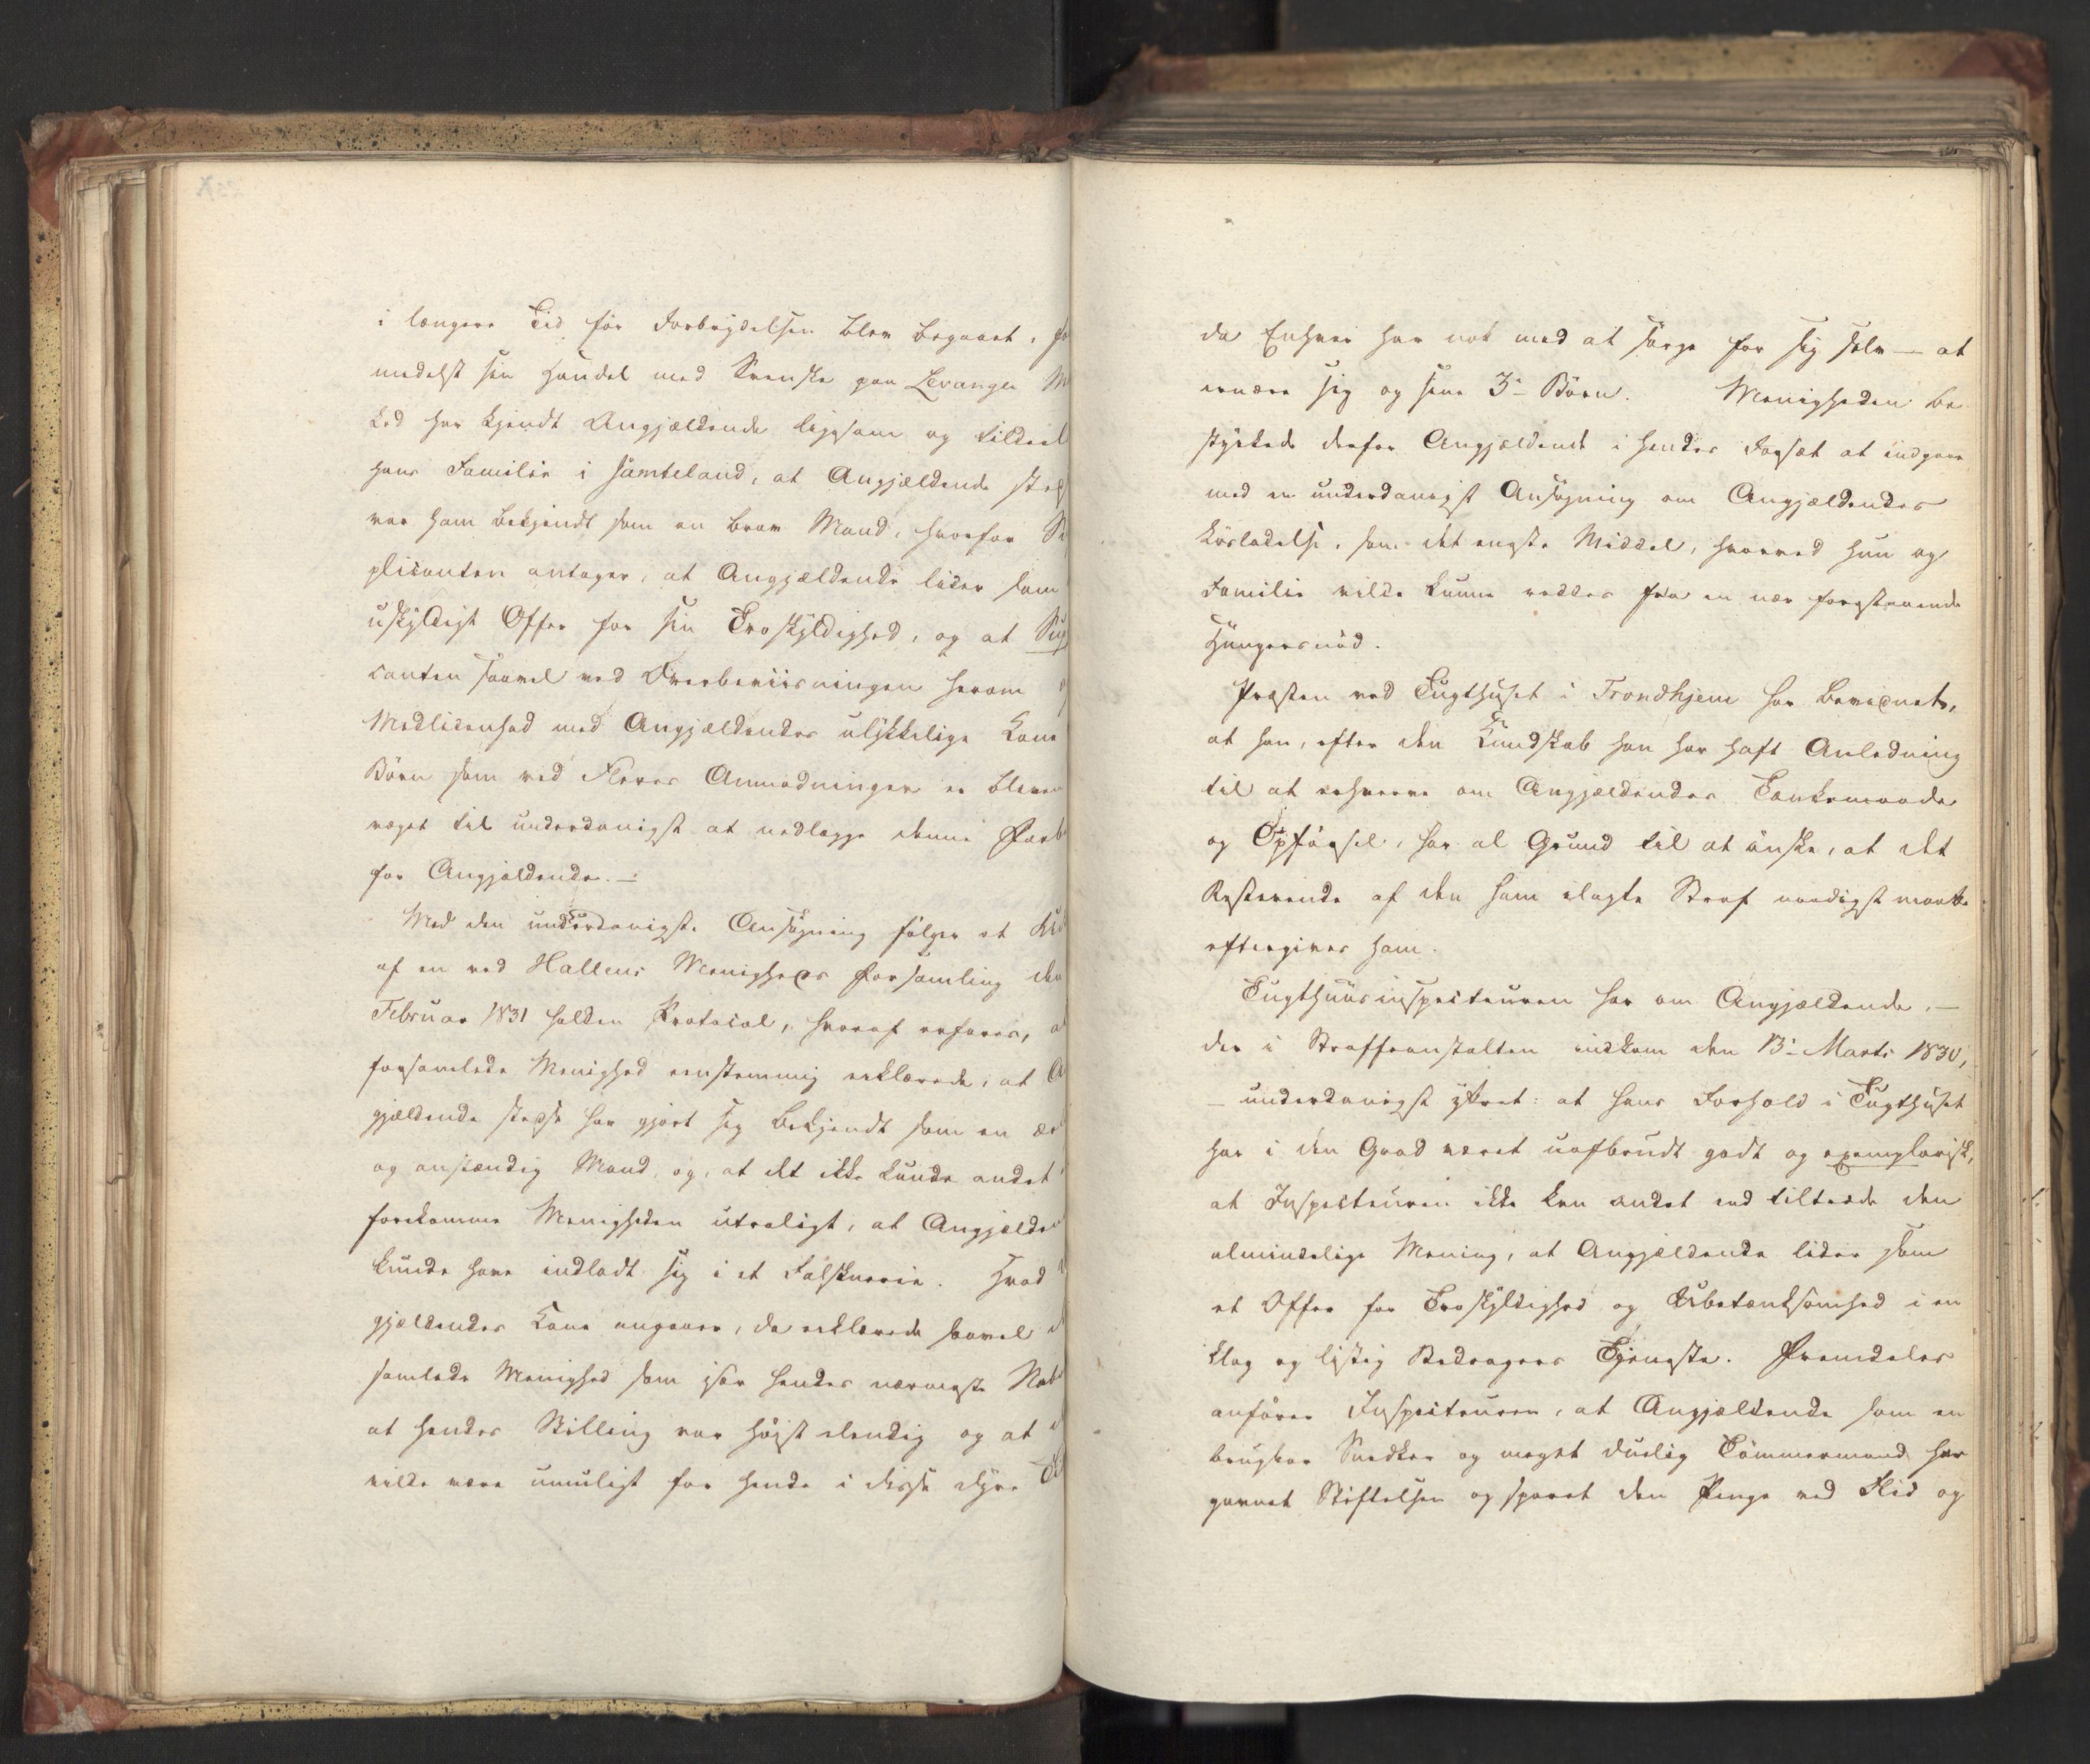 i længere Tid før Forbrydelsen blev begaaet,
medelst sin Handel med Svenske paa Levanger M
ked har kjendt Angjældende ligesom og tildeel
hans Familie i Jämteland, at Angjældende sted
var ham bekjendt som en brav Mand, hvorfor
plicanten antager, at Angjældende lider som
uskyldigt Offer for sin Troskyldighed, og at Sup
canten saavel ved Overbeviisningen herom
Medlidenhed med Angjældendes ulykkelige Kone
Börn som ved Fleres Anmodninger er bleven
væget til underdanigst at nedlægge denne Forb
for Angjældende. –
Med den underdanigste Ansøgning følger et
af en ved Hallens Menigheds Forsamling den
Februar 1831 holden Protocol, hvoraf erfares, a
forsamlede Menighed eenstemmig erklærede, at A
gjældende stedse har gjort sig bekjendt som en
og anstændig Mand, og, at det ikke kunde andet
forekomme Menigheden utroligt, at Angjælden
kunde have indladt sig i et Falskneri. Hvad
gjældendes Kone angaaer, da erklærede saavel
samlede Menighed som især hendes nærmeste Nab
at hendes Stilling var höist elendig og at
vilde være umuligt for hende i disse dyre
da Enhver har nok med at sørge for sig selv – at
ernære sig og sine 3 Börn. Menigheden be
styrkede derfor Angjældende i hendes Forsæt at indgaae
med en underdanigst Ansögning om Angjældendes
Lösladelse, som det eneste Middel, hvorved hun og
Familie vilde kunne reddes fra en nær forestaaende
Hungersnöd.
Præsten ved Tugthuset i Trondhjem har bevidnet,
at han, efter den Kundskab han har haft Anledning
til at erhverve om Angjældendes Tænkemaade
og Opförsel, har al Grund til at önske, at det
Resterende af den ham ilagte Straf naadigst maatte
eftergives ham.
Tugthuusinspecteuren har om Angjældende, –
der i Straffeanstalten indkom den 13 Marts 1830,
– underdanigst yttret: at hans Forhold i Tugthuset
har i den Grad været uafbrudt godt og exemplarisk,
at Inspecteuren ikke kan andet end tiltræde den
almindelige Mening, at Angjældende lider som
et Offer for Troskyldighed og Ubetænksomhed i en
klog og listig Bedragers Tjeneste. Fremdeles
anförer Inspecteuren, at Angjældende som en
brugbar Snedker og meget duelig Tömmermand har
gavnet Stiftelsen og sparet den Penge ved Flid og